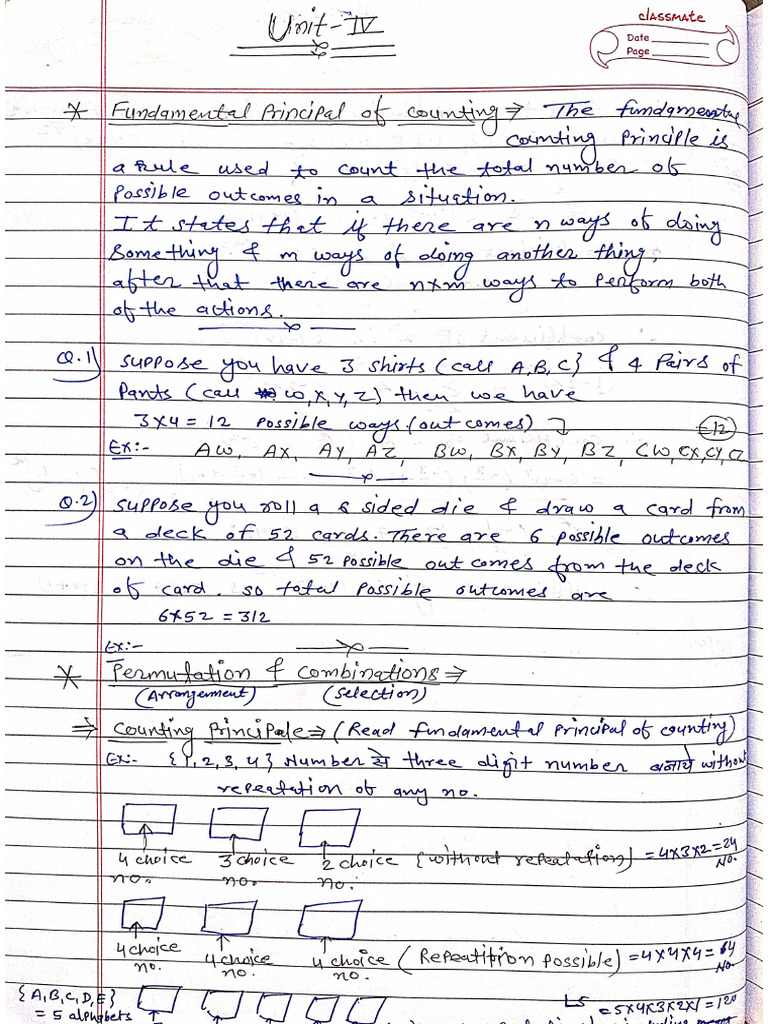 Unit-IV
classmate
Date
Page
* Fundamental Principal of counting ⇒ The fundamental
counting Principle is
a rule used to count the total number of
possible outcomes in a situation.
It states that if there are n ways of doing
Something & m ways of doing another thing,
after that there are n×m ways to perform both
of the actions.
Q.1) Suppose you have 3 shirts (call A, B, C} & 4 Pairs of
Pants (call W, X, Y, Z) then we have
3×4 = 12 possible ways (out comes)
12
Ex:- AW, AX, AY, AZ, BW, BX, BY, BZ, CW, CX, CY, CZ
Q.2) Suppose you roll a 6 sided die & draw a card from
a deck of 52 cards. There are 6 possible outcomes
on the die & 52 possible out comes from the deck
of card. so total possible outcomes are
6×52 = 312
Ex:-
* Permutation & combinations ⇒
(Arrangement) (Selection)
⇒ Counting Principale ⇒ (Read fundamental principal of counting)
Ex:- {1, 2, 3, 4} Number से three digit number बनाये without
repeatation of any no.
4 choice 3 choice 2 choice {without repeatation) = 4×3×2 = 24
no. no. no. No.
4 choice 4 choice 4 choice (Repeatition possible) = 4×4×4 = 64
no. no. no. No.
{A, B, C, D, E}
= 5 alphabets
= 5×4×3×2×1 = 120